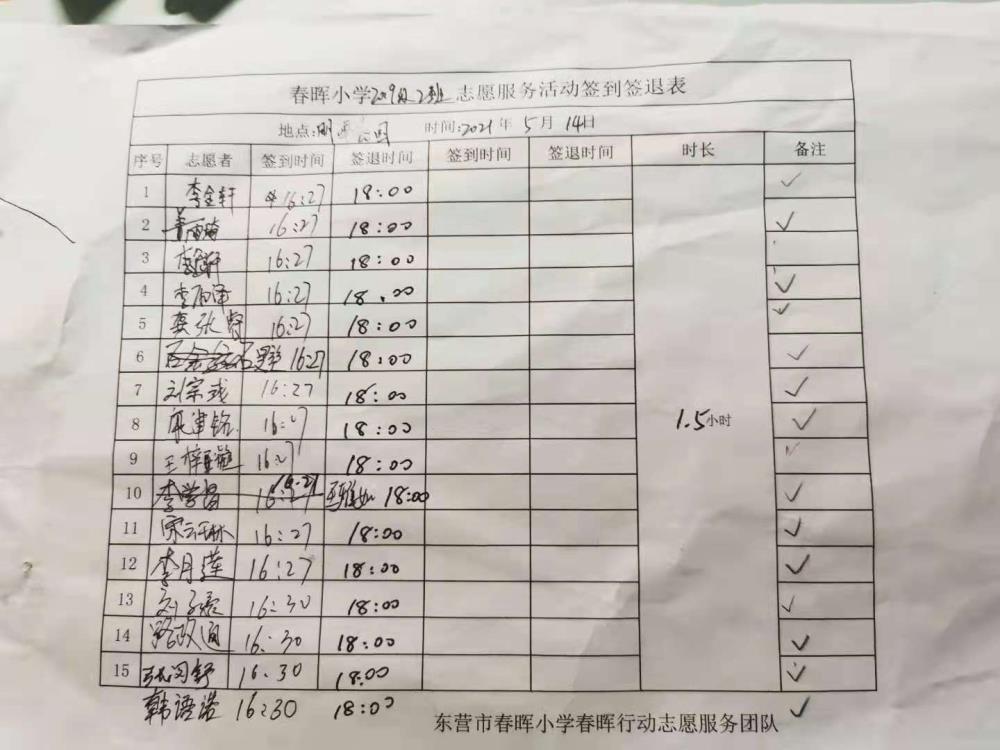 春晖小学2019级2班志愿服务活动签到签退表
地点: 时间:2021年5月14日
序号 志愿者 签到时间 签退时间 签到时间 签退时间 时长 备注
1 李金轩 16:27 18:00 ✓
2 16:27 18:00 ✓
3 16:27 18:00
4 李雨泽 16:27 18.00 ✓
5 16:27 18:00 ✓
6 1627 18:00 ✓
7 刘宗彧 16:27 18:00 ✓
8 16:27 18:00 ✓
1.5小时
9 王梓 16:27 18:00 ✓
10 李学昌 16:27 18:00 ✓
11 宋 16:27 18:00 ✓
12 李月莲 16:27 18:00 ✓
13 刘子 16:30 18:00 ✓
14 路政通 16:30 18:00 ✓
15 16.30 18:00 ✓
韩语诺 16:30 18:00 ✓
东营市春晖小学春晖行动志愿服务团队